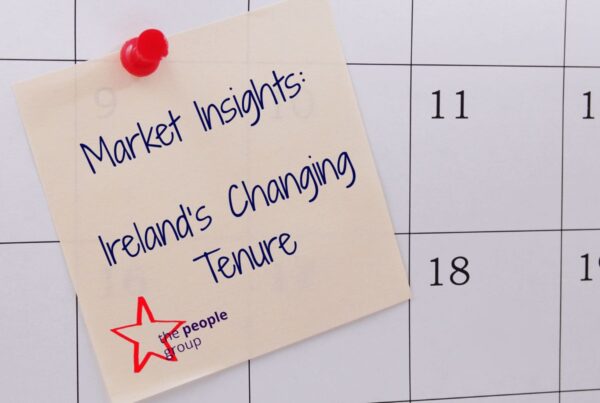 Market Insights:
Ireland's Changing
Tenure
the people
group
9
10
11
16
18